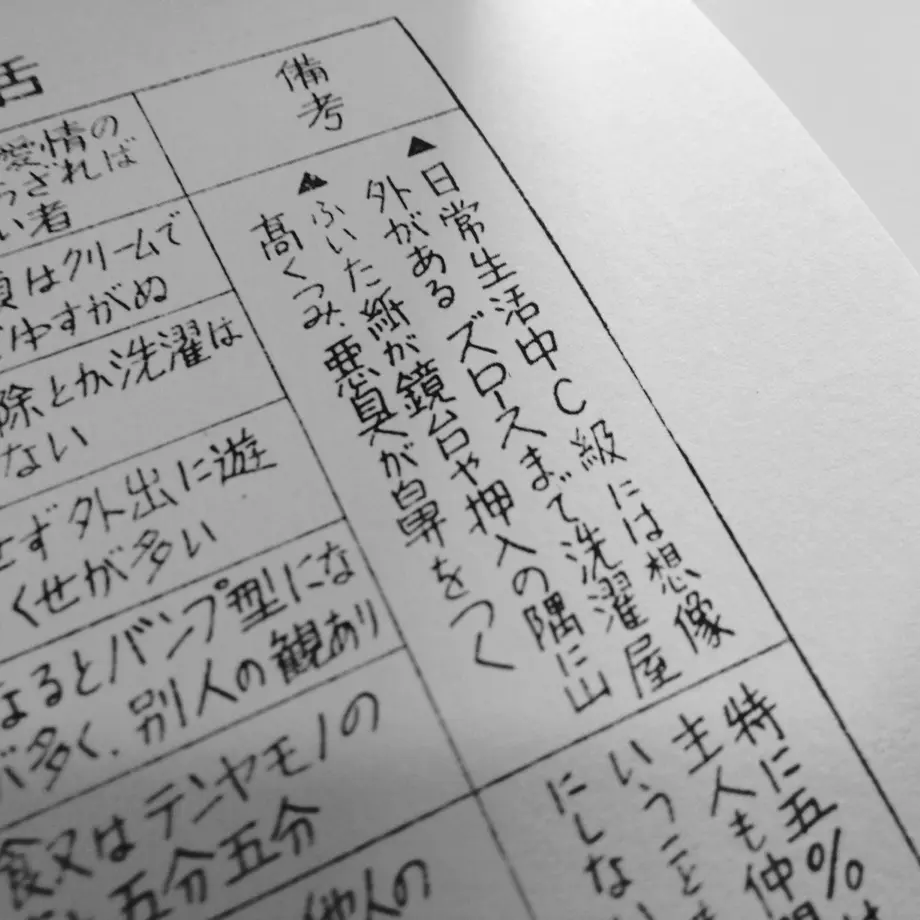 備考
▲日常生活中C級には想像
外がある ズロースまで洗濯屋
▲ふいた紙が鏡台や押入の隅に山
高くつみ、悪臭が鼻をつく
特に五%
主人も仲
いうこと
にしな
愛情の
ざれば
い者
はクリームで
やすがぬ
除とか洗濯は
ない
せず外出に遊
くせが多い
なるとバンプ型にな
が多く、別人の観あり
食又はテンヤモノの
五分五分
他人の